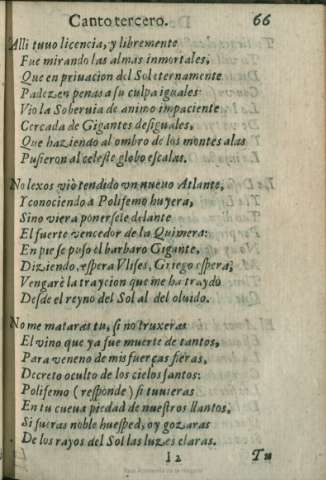 Canto tercero. 66
Alli tuuo licencia, y libremente
Fue mirando las almas inmortales,
Que en priuacion del Sol eternamente
Padezen penas a su culpa iguales:
Vio la Soberuia de animo impaciente
Cercada de Gigantes desiguales,
Que haziendo al ombro de los montes alas
Pusieron al celeste globo escalas.
No lexos viò tendido vn nueuo Atlante,
Y conociendo a Polifemo huyera,
Sino viera ponersele delante
El fuerte vencedor de la Quimera:
En pie se puso el barbaro Gigante,
Diziendo, espera Vlises, Griego espera,
Vengarè la traycion que me ha traydo
Desde el reyno del Sol al del oluido.
No me mataras tu, si no truxeras
El vino que ya fue muerte de tantos,
Para veneno de mis fuerças fieras,
Decreto oculto de los cielos santos:
Polifemo (responde) si tuuieras
En tu cueua piedad de nuestros llantos,
Si fueras noble huesped, oy gozaras
De los rayos del Sol las luzes claras.
I 2 Tu
Real Academia de la Historia